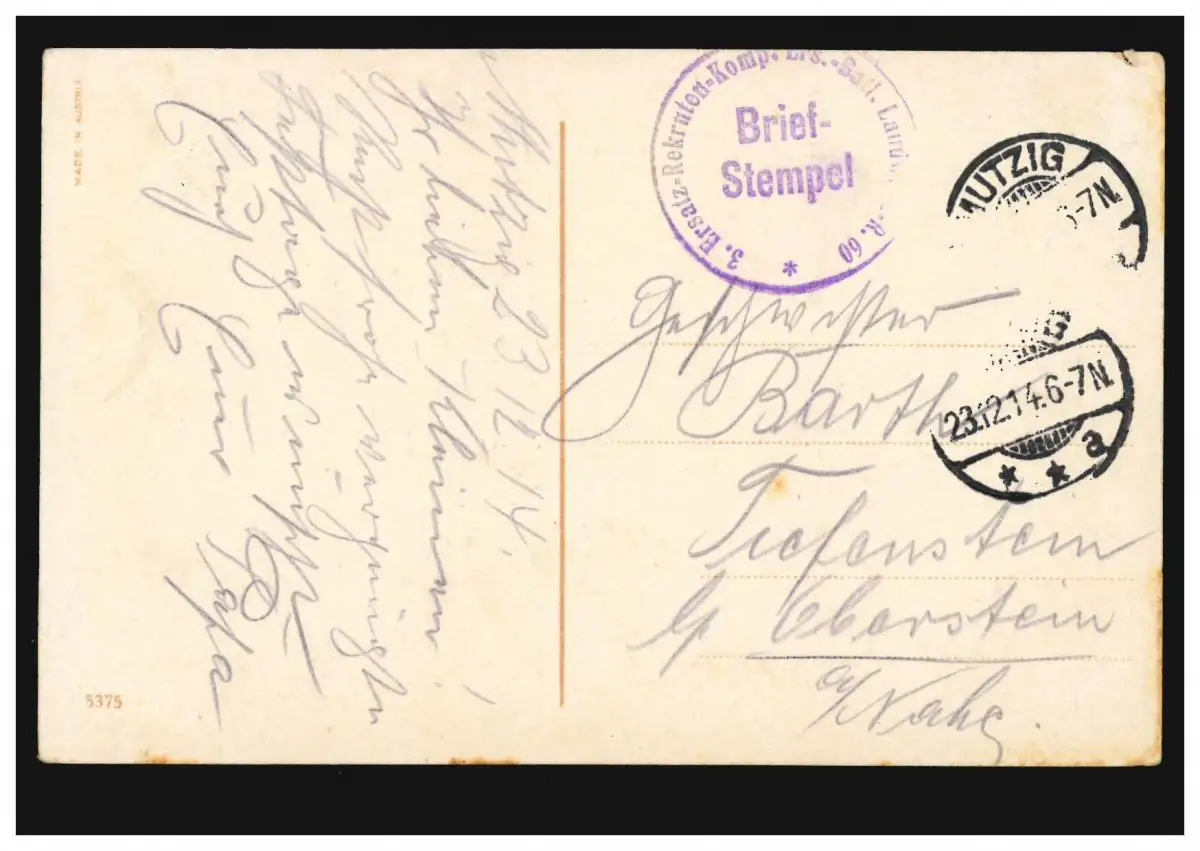 Mutzig 23.12.14.
Ihr lieben Kleinen!
Recht frohe vergnügte
wünscht
Euch Euer Papa
MADE IN AUSTRIA
5375
3. Ersatz-Rekruten-Komp. Ers.-Batl. R. 60
Brief-
Stempel
*
MUTZIG
6-7N.
23.12.14.6-7N.
* * a
Geschwister
Barth
Tiefenstein
b/ Oberstein
a/Nahe.